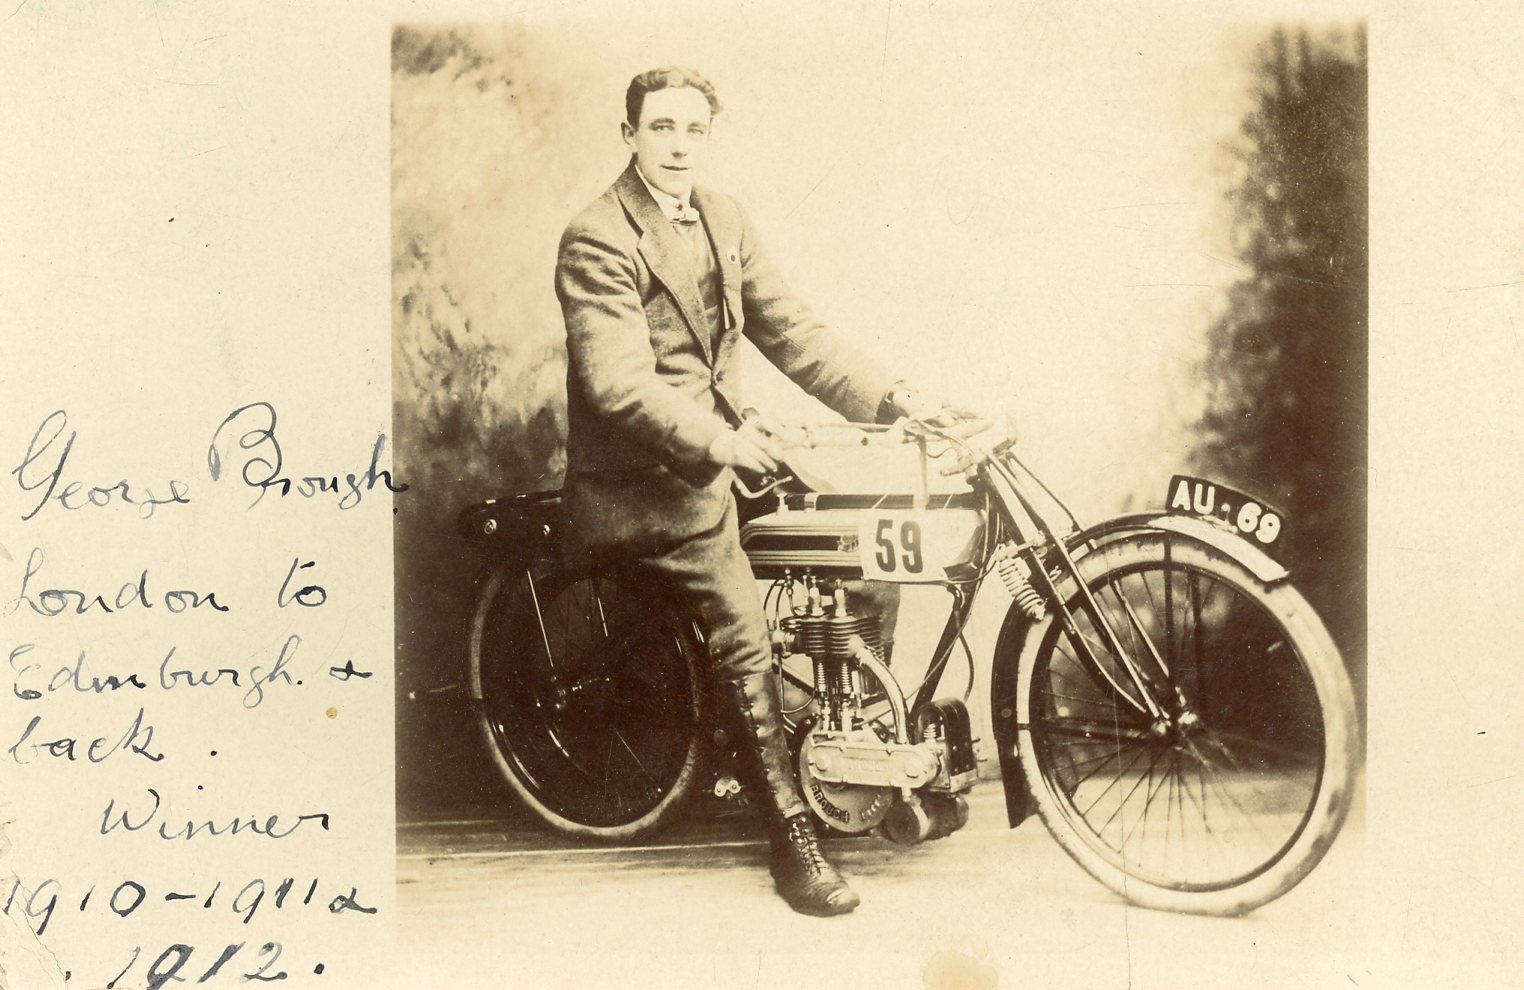 George Brough.
London to
Edinburgh &
back.
Winner
1910-1911 &
1912.
59
AU 69
BROUGH